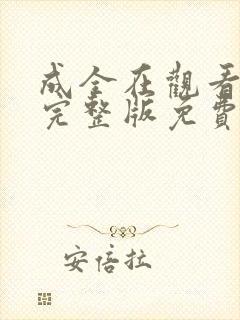 成全在觀看
完整版免費
安倍拉